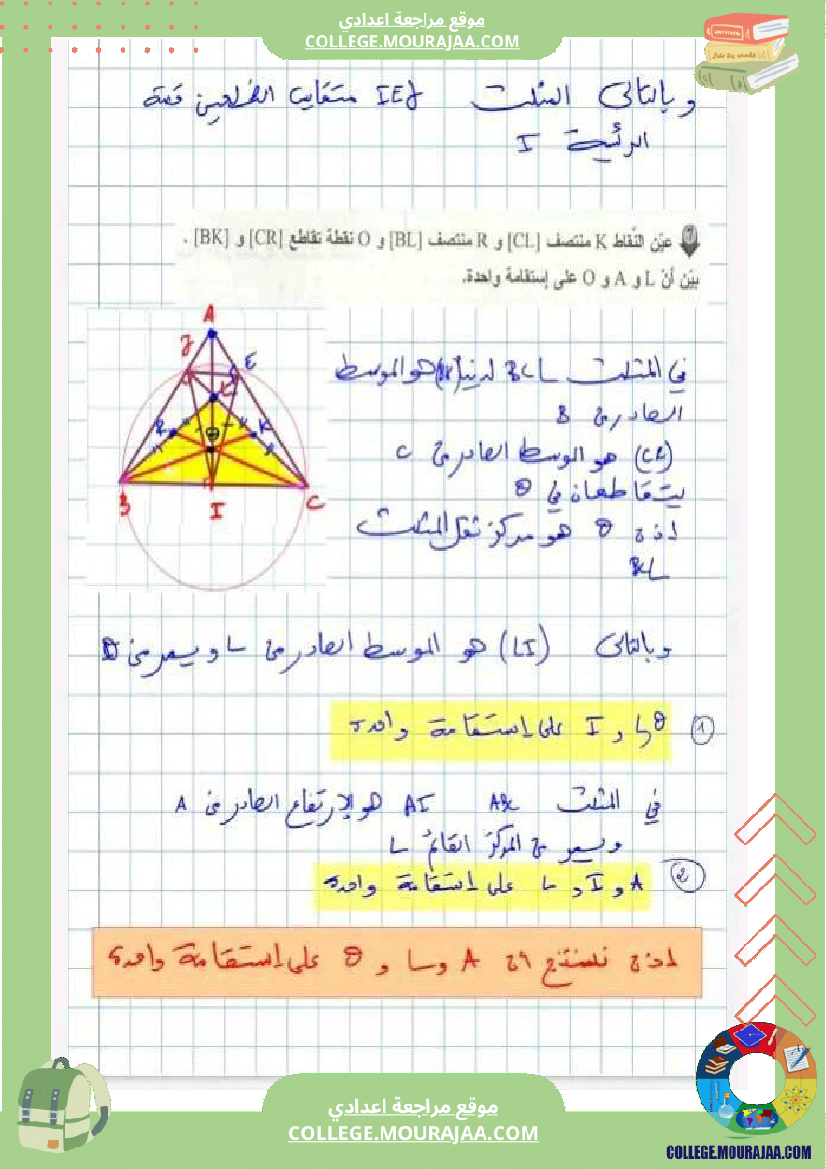 موقع مراجعة اعدادي
COLLEGE.MOURAJAA.COM
وبالتالي المثلث IEJ متقايس الضلعين قمته
الرئيسية I
7 عيّن النّقاط K منتصف [CL] و R منتصف [BL] و O نقطة تقاطع [CR] و [BK] .
بيّن أنّ L و A و O على إستقامة واحدة.
A
J
E
L
R
O
K
B
I
C
في المثلث BCL لدينا (BK) هو الموسط
الصادر من B
(CR) هو الموسط الصادر من C
يتقاطعان في O
اذن O هو مركز ثقل المثلث
BCL
وبالتالي (LI) هو الموسط الصادر من L ويمر من O
O و L و I على إستقامة واحدة 1
في المثلث ABC AI هو الإرتفاع الصادر من A
ويمر من المركز القائم L
A و I و L على إستقامة واحدة 2
اذن نستنتج ان A و L و O على إستقامة واحدة
موقع مراجعة اعدادي
COLLEGE.MOURAJAA.COM
COLLEGE.MOURAJAA.COM